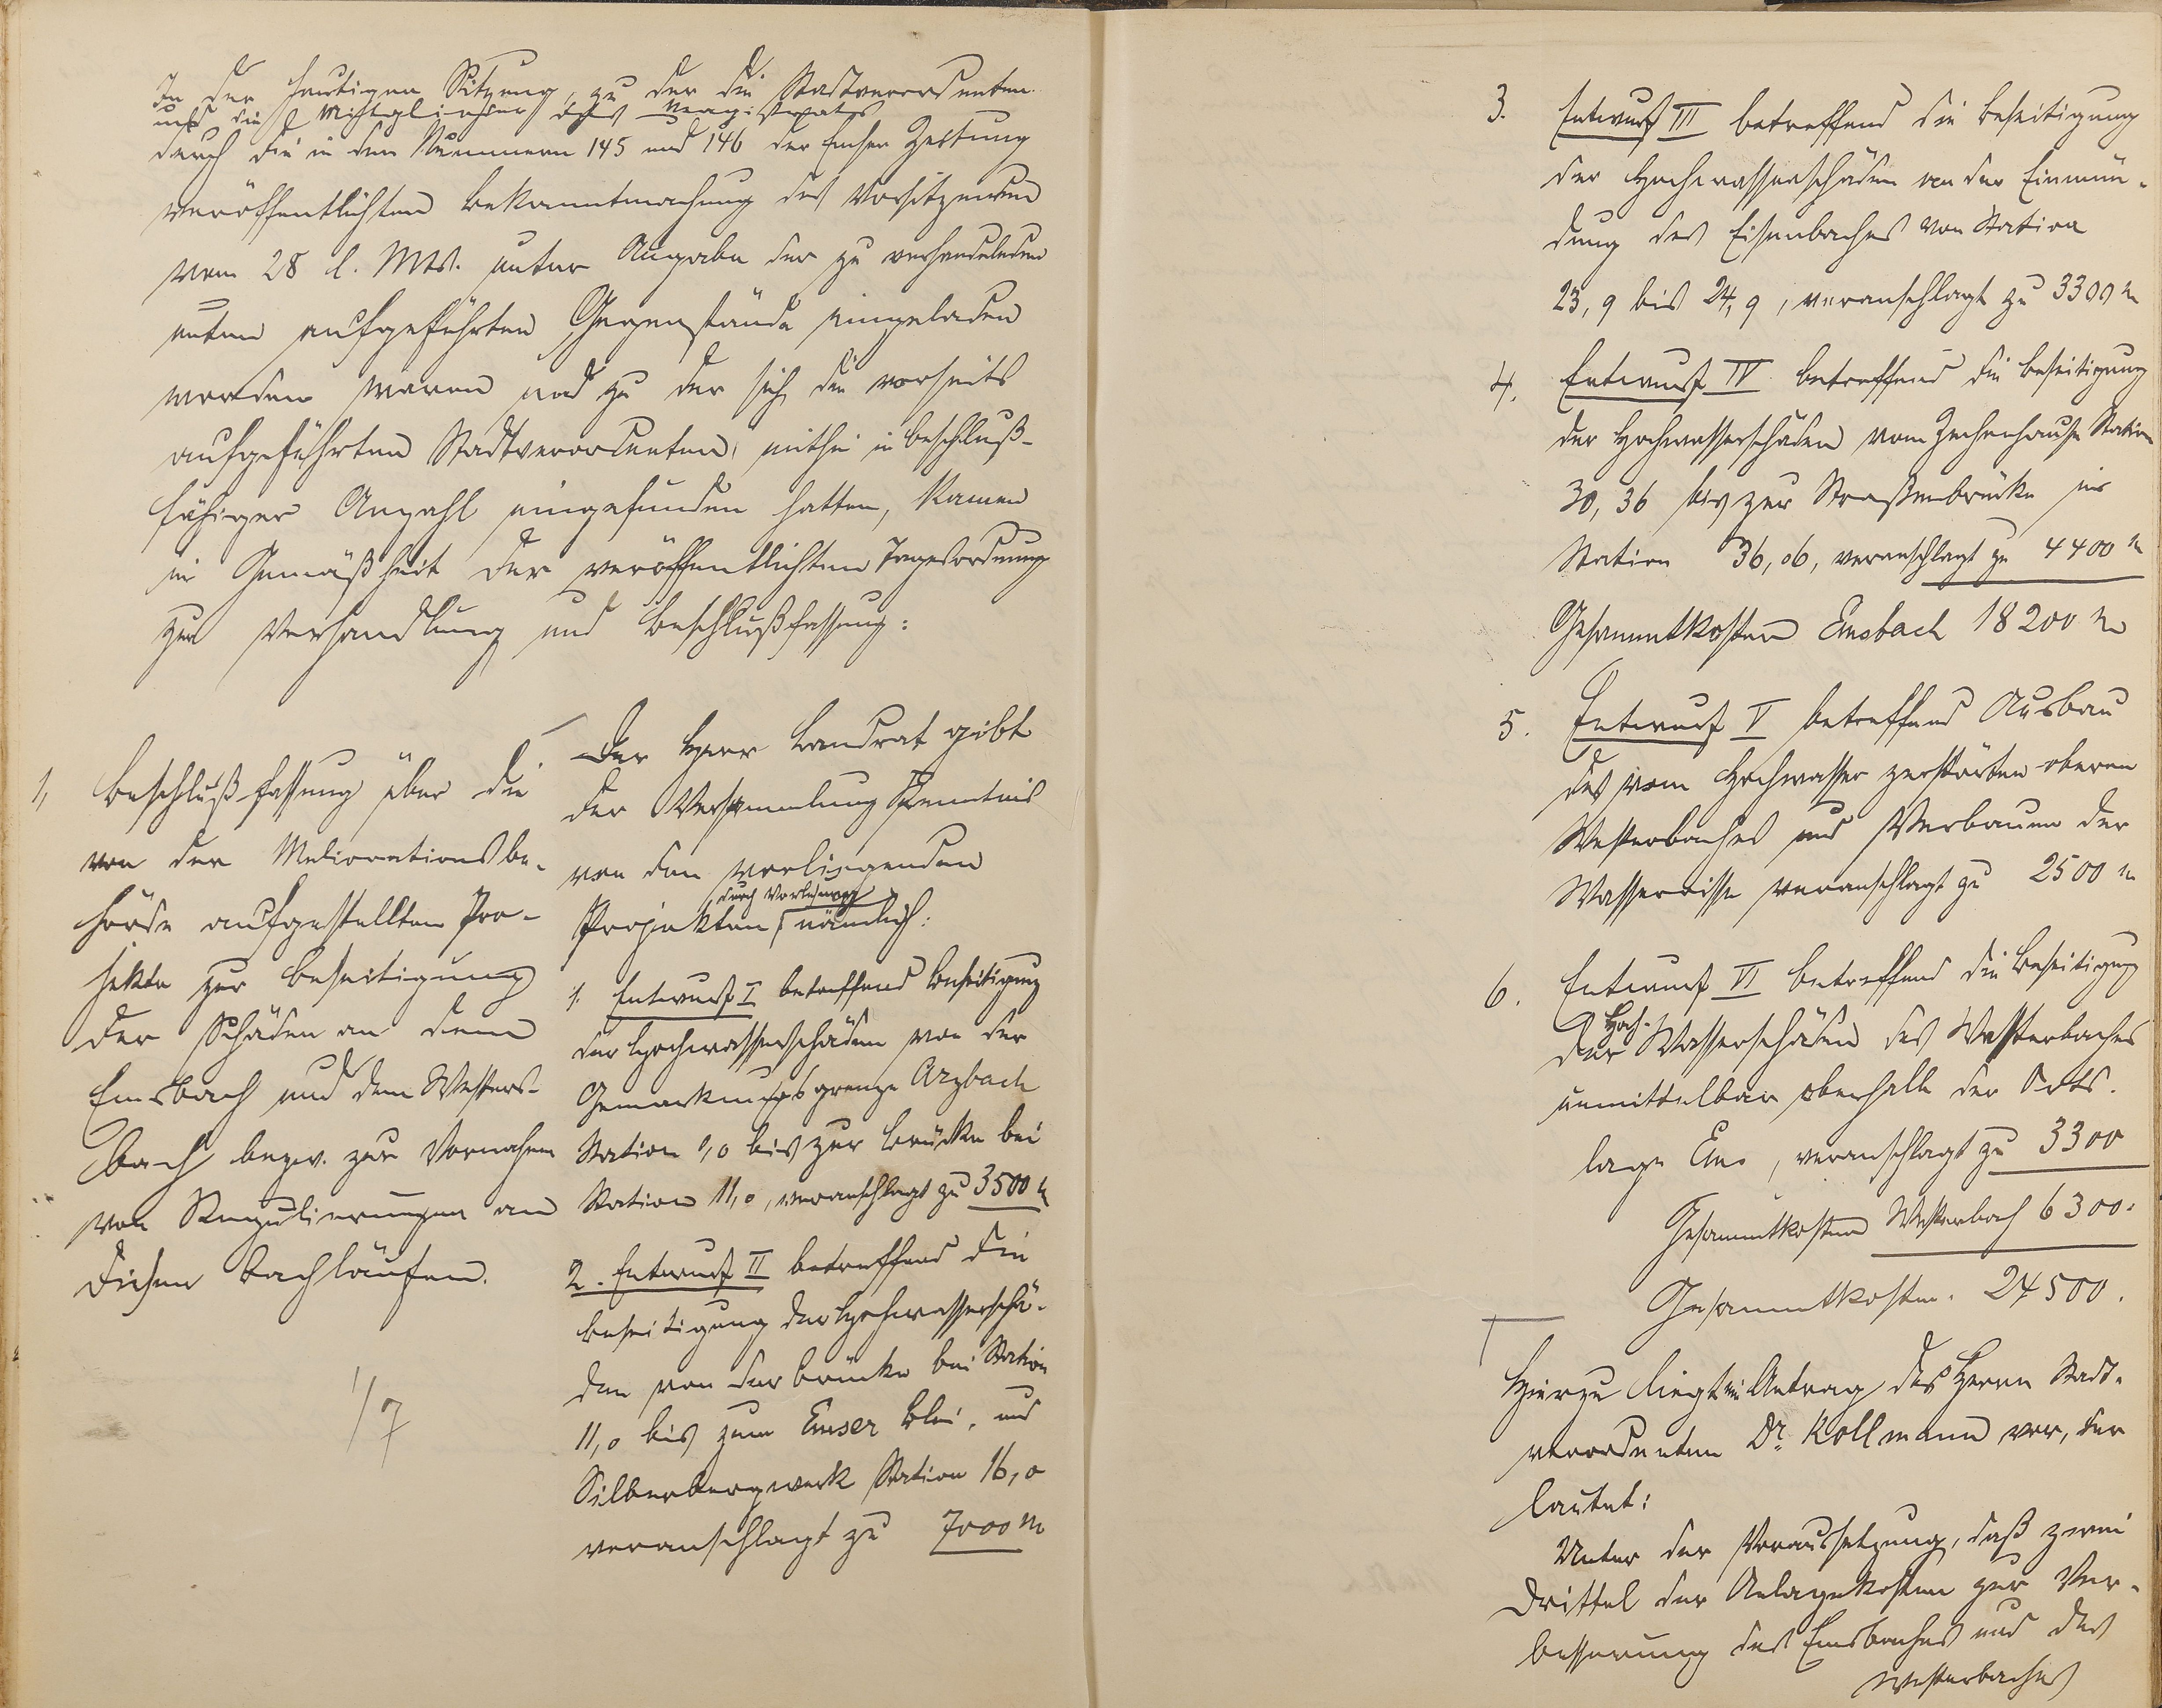 In der heutigen Sitzung, zu der die Stadtverordneten
und die Mitglieder des Magistrats
durch die in den Nummern 145 und 146 der Emser Zeitung
veröffentlichten Bekanntmachung des Vorsitzenden
vom 28 l. Mts. unter Angabe der zu verhandelnden
unten aufgeführten Gegenstände eingeladen
worden waren und zu der sich die vorseits
aufgeführten Stadtverordneten, mithin in beschluß-
fähiger Anzahl eingefunden hatten, kamen
in Gemäßheit der veröffentlichten Tagesordnung
zur Verhandlung und Beschlußfassung:
1, Beschlußfassung über die
von der Meliorationsbe-
hörde aufgestellten Pro-
jekte zur Beseitigung
der Schäden an dem
Emsbach und dem Wester-
bach bezw. zur Vornahme
von Regulierungen an
diesen Bachläufen.
1/7
Der Herr Landrat gibt
der Versammlung Kenntnis
von den vorliegenden
durch Vorlesung
Projekten, nämlich:
1. Entwurf I betreffend Beseitigung
der Hochwasserschäden von der
Gemarkungsgrenze Arzbach
Station 0,0 bis zur Brücke bei
Station 11,0, veranschlagt zu 3500 M
2. Entwurf II betreffend die
Beseitigung der Hochwasserschä-
den von der Brücke bei Station
11,0 bis zum Emser Blei- und
Silberbergwerk Station 16,0
veranschlagt zu 7000 M
3. Entwurf III betreffend die Beseitigung
der Hochwasserschäden an der Einmün-
dung des Eisenbaches von Station
23,9 bis 24,9, veranschlagt zu 3300 M
4. Entwurf IV betreffend die Beseitigung
der Hochwasserschäden vom Zechenhause Station
30,36 bis zur Straßenbrücke in
Station 36,06, veranschlagt zu 4400 M
Gesammtkosten Emsbach 18200 M
5. Entwurf V betreffend Ausbau
des vom Hochwasser zerstörten oberen
Westerbaches und Verbauen der
Wasserrisse veranschlagt zu 2500 M
6. Entwurf VI betreffend die Beseitigung
der Hoch-Wasserschäden des Westerbaches
unmittelbar oberhalb der Orts-
lage Ems, veranschlagt zu 3300
Gesammtkosten Westerbach 6300.
Gesammtkosten. 24500.
Hierzu liegt ein Antrag des Herrn Stadt-
verordneten Dr. Kollmann vor, der
lautet:
Unter der Voraussetzung, daß zwei
Drittel der Anlagekosten zur Ver-
besserung des Emsbaches und des
Westerbaches